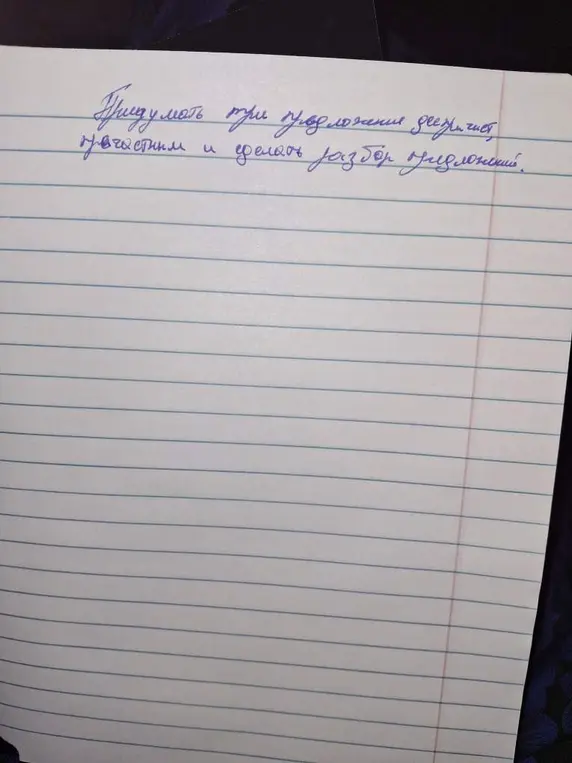 Придумать три предложения деепричаст,
причастным и сделать разбор предложений.